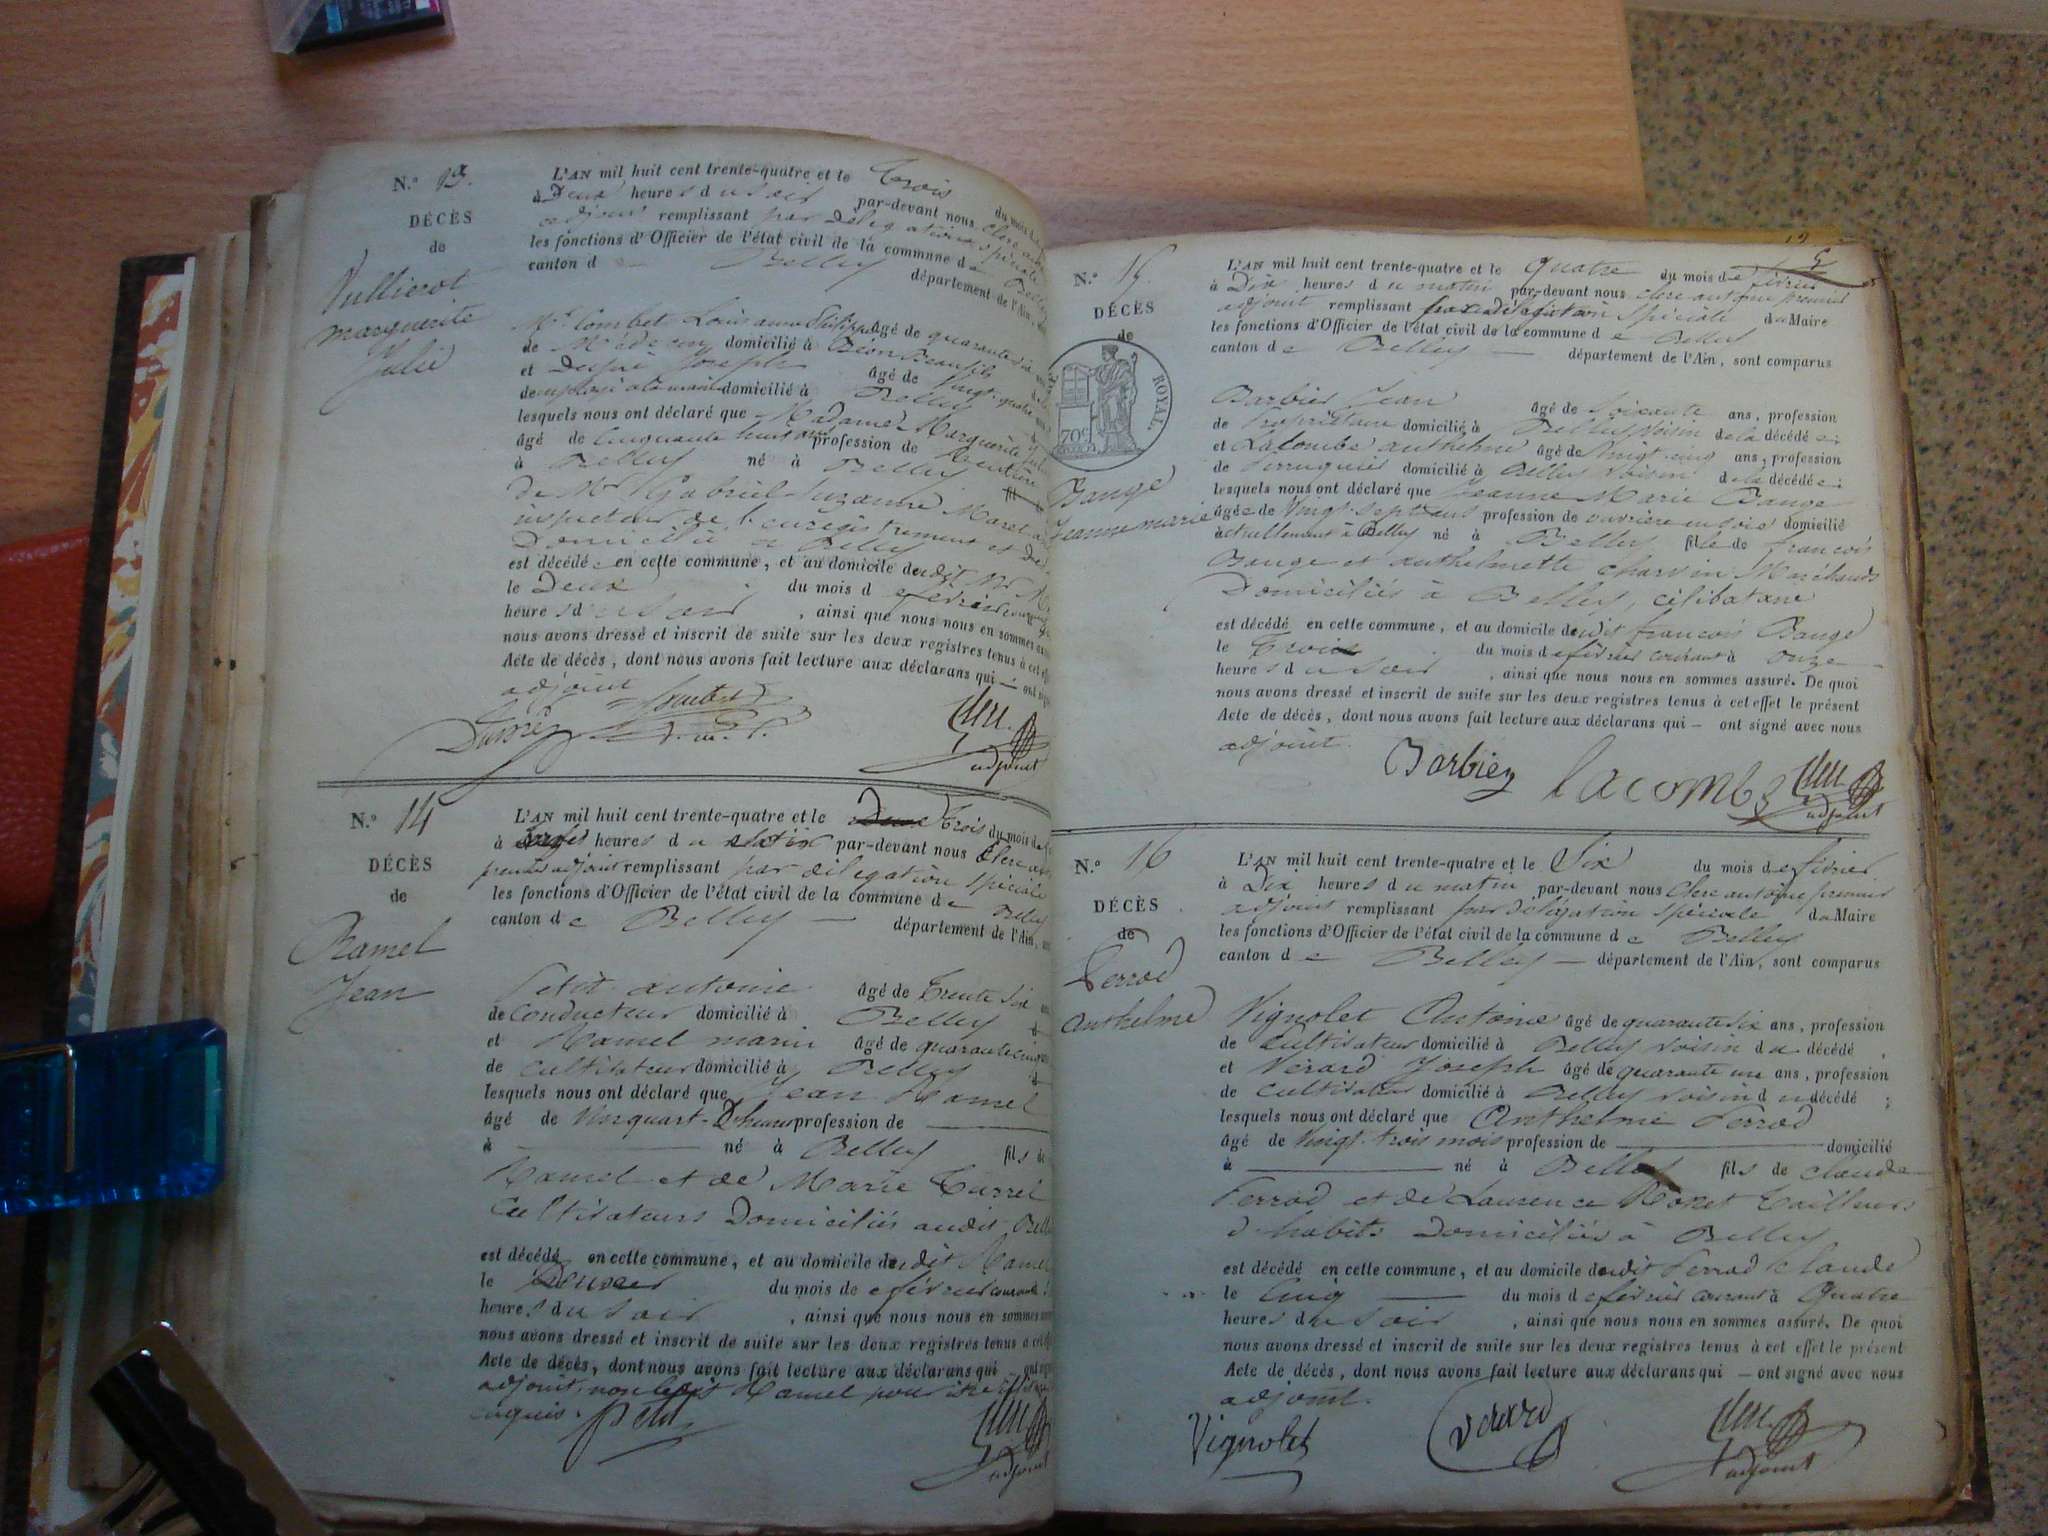 N.° 13.
DÉCÈS
de
Vullierot
marguerite
Julie
L'AN mil huit cent trente-quatre et le Trois du mois d
à Deux heures du soir par-devant nous Clerc
adjoint remplissant par Délégation spéciale
les fonctions d'Officier de l'état civil de la commune de Belley
canton d Belley département de l'Ain,
Mr Combet Louis anne Philippe âgé de quarante six
de Médecin domicilié à
et Dupré Joseph âgé de vingt-quatre
de employé à la mairie domicilié à Belley
lesquels nous ont déclaré que Madame Marguerite Julie
âgé de Cinquante huit ans profession de Rentière
à Belley né à Belley
de Mr Gabriel Suzanne Maret
inspecteur de l'enregistrement et De
Domicilié à Belley
est décédée en cette commune, et au domicile dudit Mr M
le Deux du mois de février
heures du soir, ainsi que nous nous en sommes
nous avons dressé et inscrit de suite sur les deux registres tenus à cet
Acte de décès, dont nous avons fait lecture aux déclarans qui — ont
adjoint
Dupré Combet D. m. P. Clerc
adjoint
N.° 14
DÉCÈS
de
Ramel
Jean
L'AN mil huit cent trente-quatre et le Deux Trois du mois de
à heures du matin par-devant nous Clerc
premier adjoint remplissant par délégation spéciale
les fonctions d'Officier de l'état civil de la commune de Belley
canton de Belley — département de l'Ain,
Petit antoine âgé de Trente six
de Conducteur domicilié à Belley
et Ramel marin âgé de quarante cinq
de Cultivateur domicilié à Belley
lesquels nous ont déclaré que Jean Ramel
âgé de Un quart-D'heure profession de —
à — né à Belley fils de
Ramel et de Marie Turrel
Cultivateurs Domiciliés audit Belley
est décédé en cette commune, et au domicile dudit Ramel
le du mois de février courant
heures du soir, ainsi que nous nous en sommes
nous avons dressé et inscrit de suite sur les deux registres tenus à cet
Acte de décès, dont nous avons fait lecture aux déclarans qui ont
adjoint, non ledit Ramel pour
requis. Petit Clerc
adjoint
N.° 15.
DÉCÈS
de
ROYAL.
70c
Bange
Jeanne marie
L'AN mil huit cent trente-quatre et le quatre du mois de février
à Dix heures du matin par-devant nous Clerc antoine premier
adjoint remplissant par délégation spéciale du Maire
les fonctions d'Officier de l'état civil de la commune de Belley
canton de Belley — département de l'Ain, sont comparus
Barbier Jean âgé de soixante ans, profession
de Propriétaire domicilié à Belley voisin de la décédée;
et Lacombe anthelme âgé de vingt cinq ans, profession
de Perruquier domicilié à Belley voisin de la décédée;
lesquels nous ont déclaré que Jeanne Marie Bange
âgée de Vingt-sept ans profession de ouvrière en soie domicilié
actuellement à Belley né à Belley fille de françois
Bange et anthelmette charvin Marchands
Domiciliés à Belley, célibataire
est décédé en cette commune, et au domicile dudit françois Bange
le Trois du mois de février courant à onze —
heures du soir, ainsi que nous nous en sommes assuré. De quoi
nous avons dressé et inscrit de suite sur les deux registres tenus à cet effet le présent
Acte de décès, dont nous avons fait lecture aux déclarans qui — ont signé avec nous
adjoint.
Barbier lacombe Clerc
adjoint
N.° 16
DÉCÈS
de
Perrod
Anthelme
L'AN mil huit cent trente-quatre et le Six du mois de février
à Dix heures du matin par-devant nous Clerc antoine premier
adjoint remplissant par délégation spéciale du Maire
les fonctions d'Officier de l'état civil de la commune de Belley
canton de Belley — département de l'Ain, sont comparus
Vignolet Antoine âgé de quarante six ans, profession
de Cultivateur domicilié à Belley voisin du décédé
et Vérard Joseph âgé de quarante un ans, profession
de Cultivateur domicilié à Belley voisin du décédé;
lesquels nous ont déclaré que Anthelme Perrod
âgé de Vingt-trois mois profession de — domicilié
à — né à Belley fils de claude
Perrod et de Laurence Tailleurs
d'habits Domiciliés à Belley
est décédé en cette commune, et au domicile dudit Perrod claude
le Cinq — du mois de février courant à Quatre
heures du soir, ainsi que nous nous en sommes assuré. De quoi
nous avons dressé et inscrit de suite sur les deux registres tenus à cet effet le présent
Acte de décès, dont nous avons fait lecture aux déclarans qui — ont signé avec nous
adjoint.
Vignolet verard Clerc
adjoint